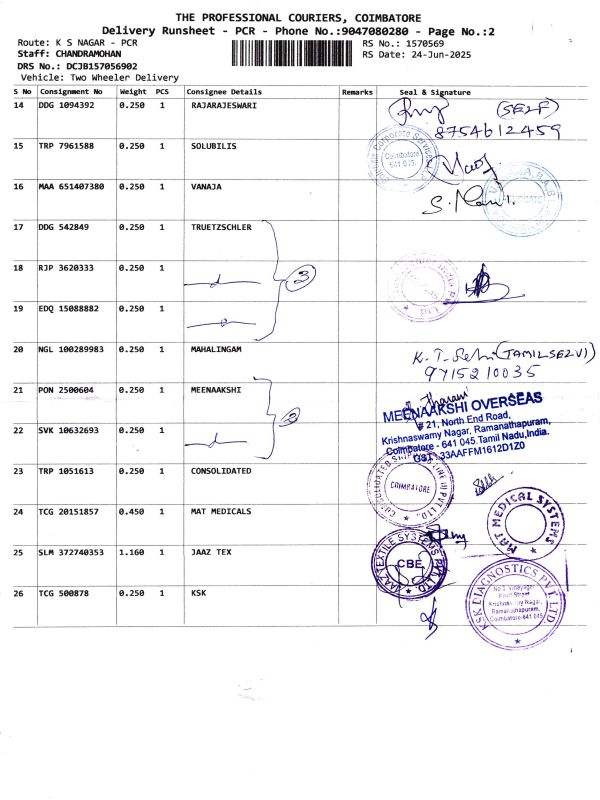 THE PROFESSIONAL COURIERS, COIMBATORE
Delivery Runsheet - PCR - Phone No.:9047080280 - Page No.:2
Route: K S NAGAR - PCR
RS No.: 1570569
Staff: CHANDRAMOHAN
RS Date: 24-Jun-2025
DRS No.: DCJB157056902
Vehicle: Two Wheeler Delivery
S No Consignment No Weight PCS Consignee Details Remarks Seal & Signature
14 DDG 1094392 0.250 1 RAJARAJESWARI
(SELF)
8754612459
15 TRP 7961588 0.250 1 SOLUBILIS
Corporate Service
Coimbatore
641 045.
16 MAA 651407380 0.250 1 VANAJA
S. Mani.
17 DDG 542849 0.250 1 TRUETZSCHLER
18 RJP 3620333 0.250 1
3
19 EDQ 15088882 0.250 1
20 NGL 100289983 0.250 1 MAHALINGAM
K. T. Selvi (TAMILSELVI)
9715210035
21 PON 2500604 0.250 1 MEENAAKSHI
Tharani
MEENAAKSHI OVERSEAS
# 21, North End Road,
Krishnaswamy Nagar, Ramanathapuram,
Coimbatore - 641 045.Tamil Nadu,India.
GST : 33AAFFM1612D1Z0
22 SVK 10632693 0.250 1
2
23 TRP 1051613 0.250 1 CONSOLIDATED
COIMBATORE
24 TCG 20151857 0.450 1 MAT MEDICALS
MAT MEDICAL SYSTEMS
25 SLM 372740353 1.160 1 JAAZ TEX
JAAZ TEXTILE SYSTEMS PVT LTD
CBE
26 TCG 500878 0.250 1 KSK
KSK DIAGNOSTICS PVT. LTD.
Krishnaswamy Nagar,
Ramanathapuram,
Coimbatore-641 045